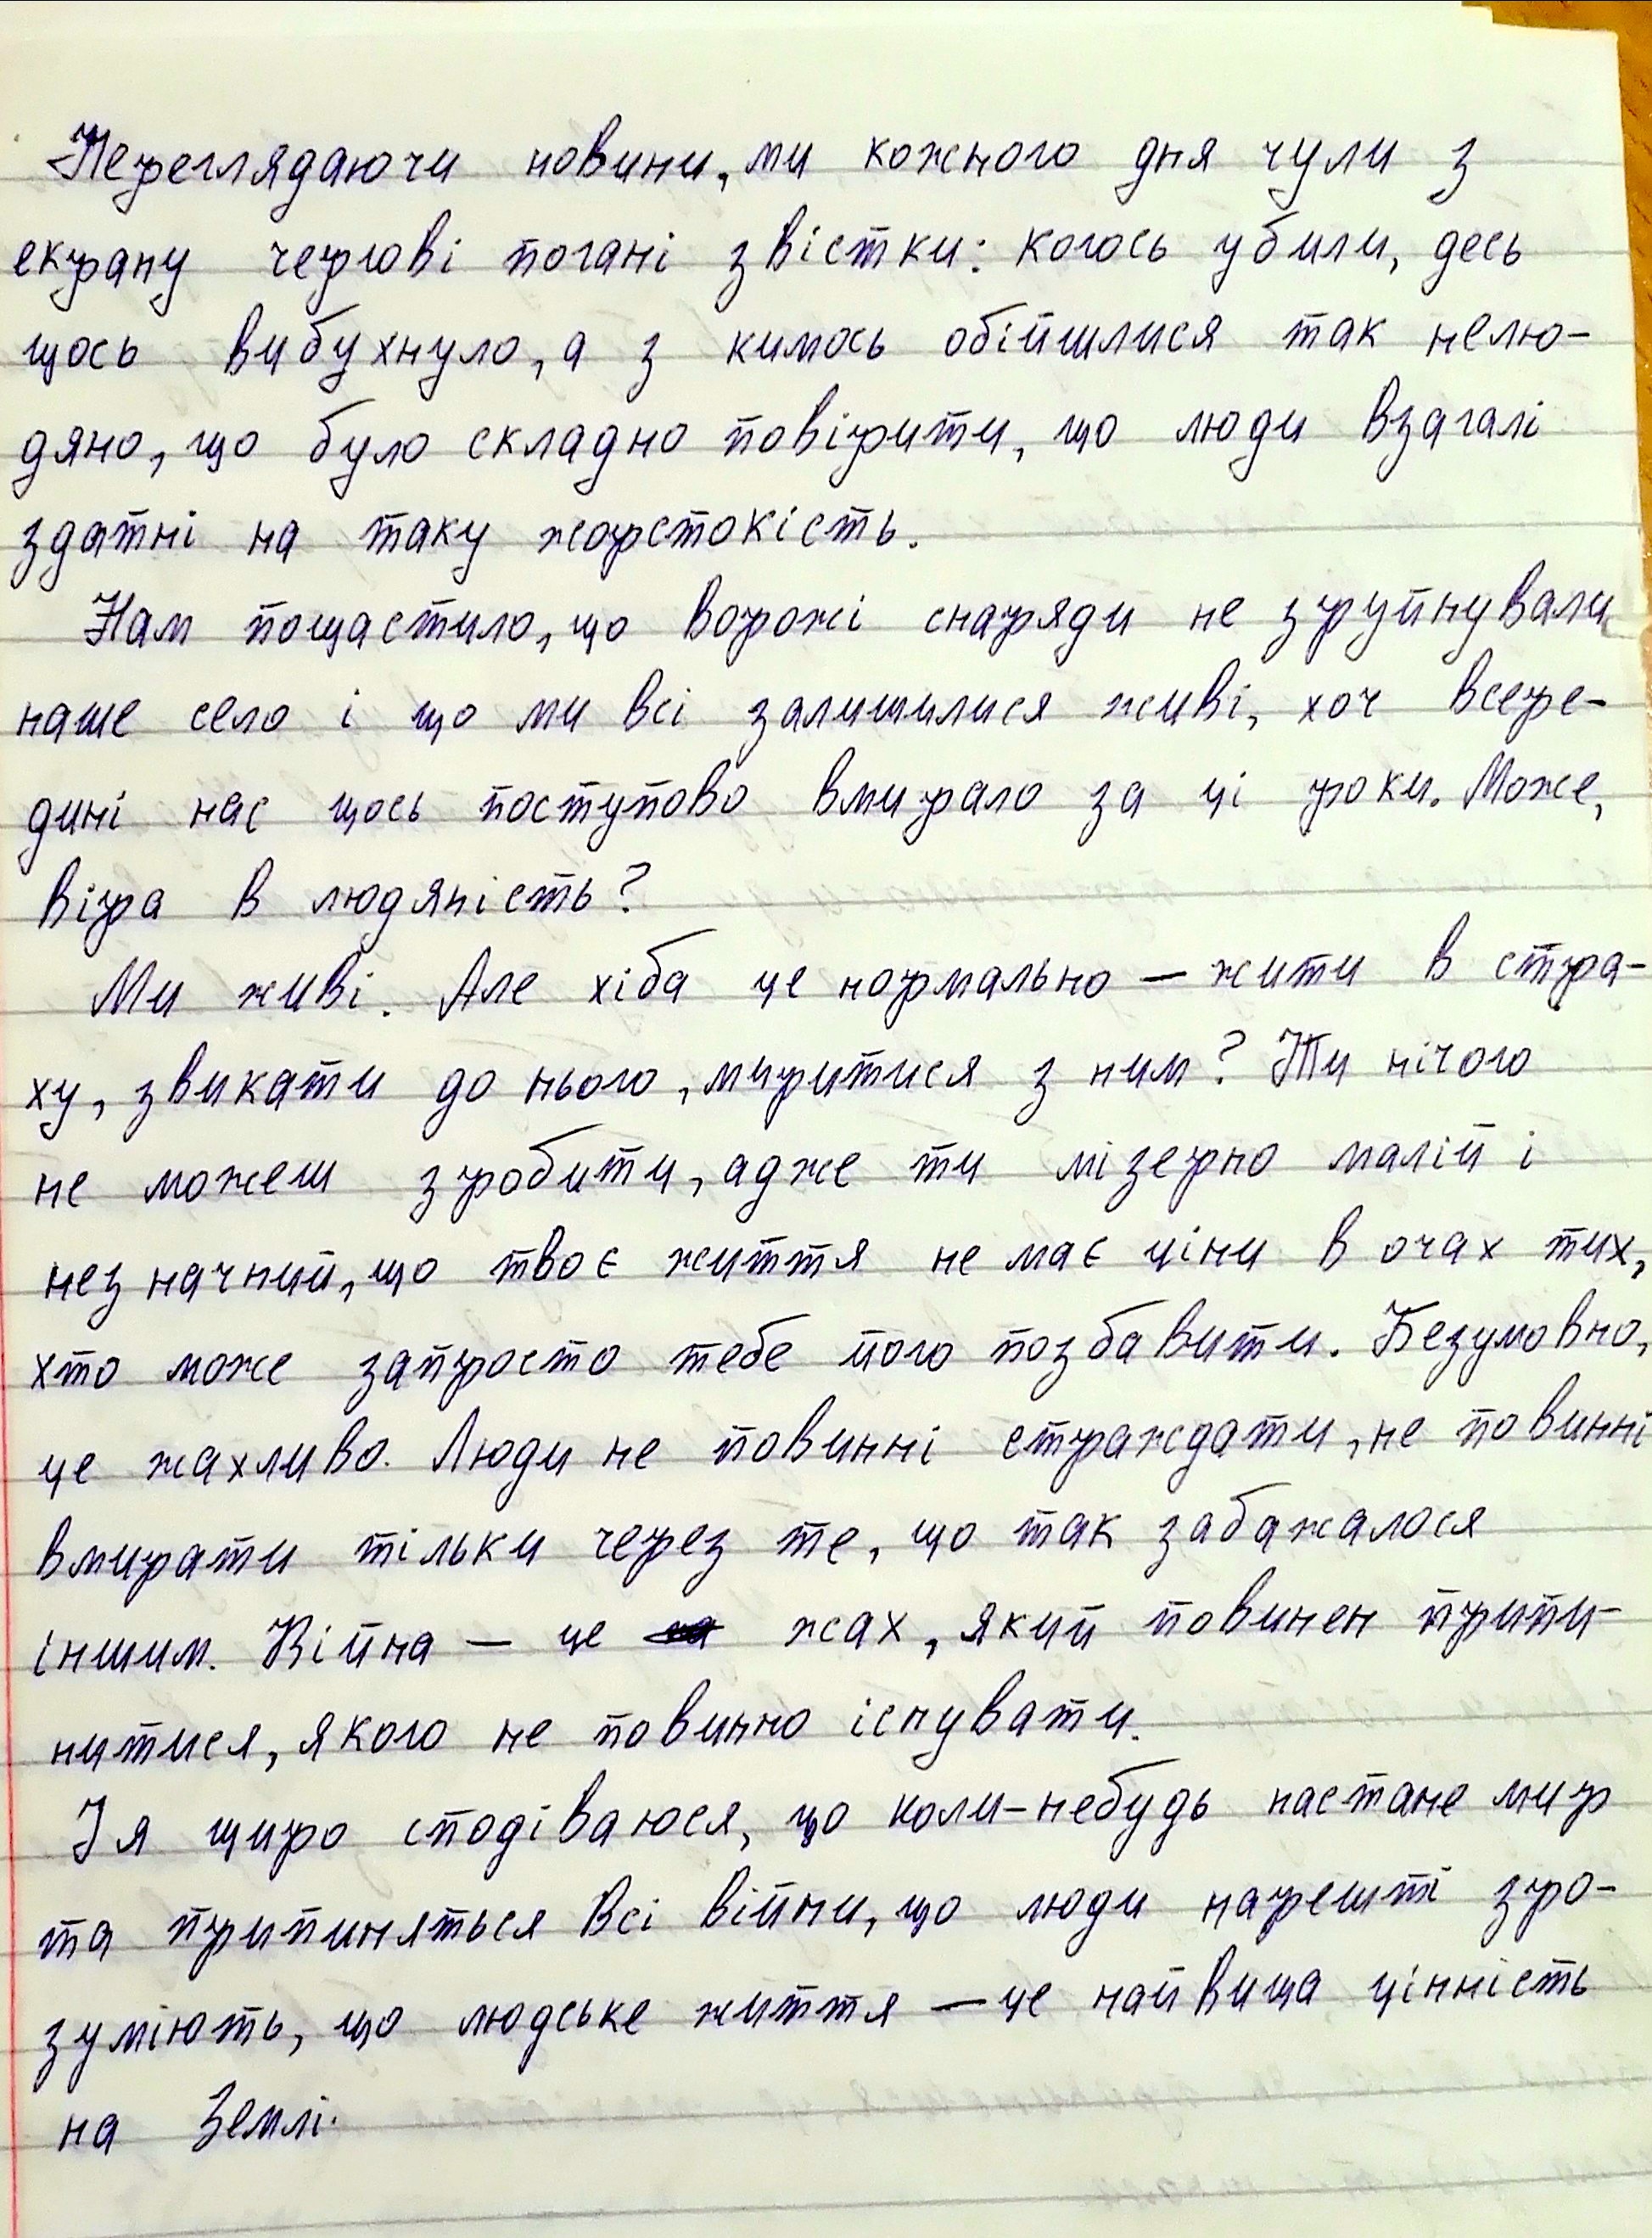 Переглядаючи новини, ми кожного дня чули з
екрану чергові погані звістки: когось убили, десь
щось вибухнуло, а з кимось обійшлися так нелю-
дяно, що було складно повірити, що люди взагалі
здатні на таку жорстокість.
Нам пощастило, що ворожі снаряди не зруйнували
наше село і що ми всі залишилися живі, хоч всере-
дині нас щось поступово вмирало за ці роки. Може,
віра в людяність?
Ми живі. Але хіба це нормально — жити в стра-
ху, звикати до нього, миритися з ним? Ти нічого
не можеш зробити, адже ти мізерно малій і
незначний, що твоє життя не має ціни в очах тих,
хто може запросто тебе його позбавити. Безумовно,
це жахливо. Люди не повинні страждати, не повинні
вмирати тільки через те, що так забажалося
іншим. Війна — це жах, який повинен припи-
нитися, якого не повинно існувати.
І я щиро сподіваюся, що коли-небудь настане мир
та припиняться всі війни, що люди нарешті зро-
зуміють, що людське життя — це найвища цінність
на Землі.